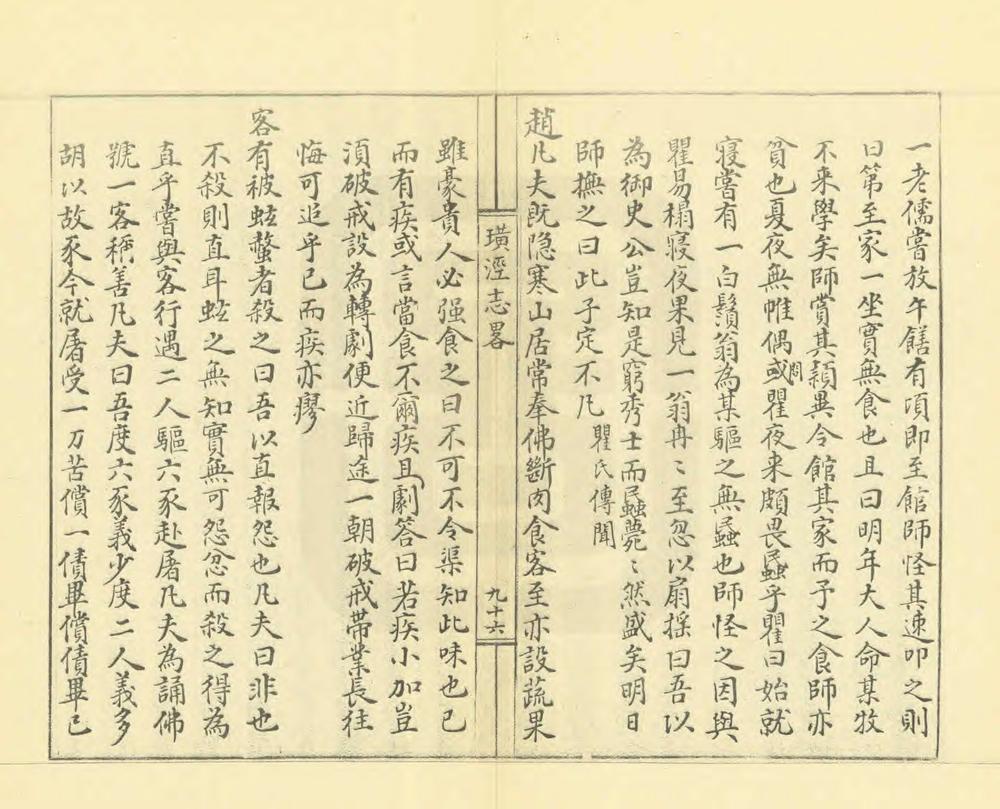 一老儒嘗放午饍有項即至館師怪其速叩之則
曰第至家一坐實無食也且曰明年大人命某牧
不来學矣師賞其穎異今館其家而予之食師亦
貧也夏夜無帷偶問或瞿夜来頗畏蟁乎瞿曰始就
寝嘗有一白鬚翁為某驅之無蟁也師怪之因與
瞿易榻寝夜果見一翁冉〻至忽以扇揺曰吾以
為御史公豈知是窮秀士而蟁薨〻然盛矣明日
師撫之曰此子定不凡瞿氏傳聞
趙凡夫既隐寒山居常奉佛斷肉食客至亦設蔬果
璜涇志畧
九十六
雖豪貴人必强食之曰不可不令渠知此味也已
而有疾或言當食不爾疾且劇答曰若疾小加豈
湏破戒設為轉劇便近歸途一朝破戒帶業長往
悔可追乎已而疾亦瘳
客有被蚿螫者殺之曰吾以直報怨也凡夫曰非也
不殺則直耳蚿之無知實無可怨忿而殺之得為
直乎嘗與客行遇二人驅六豕赴屠凡夫為誦佛
號一客稱善凡夫曰吾度六豕義少度二人義多
胡以故豕今就屠受一刀苦償一債畢償債畢已